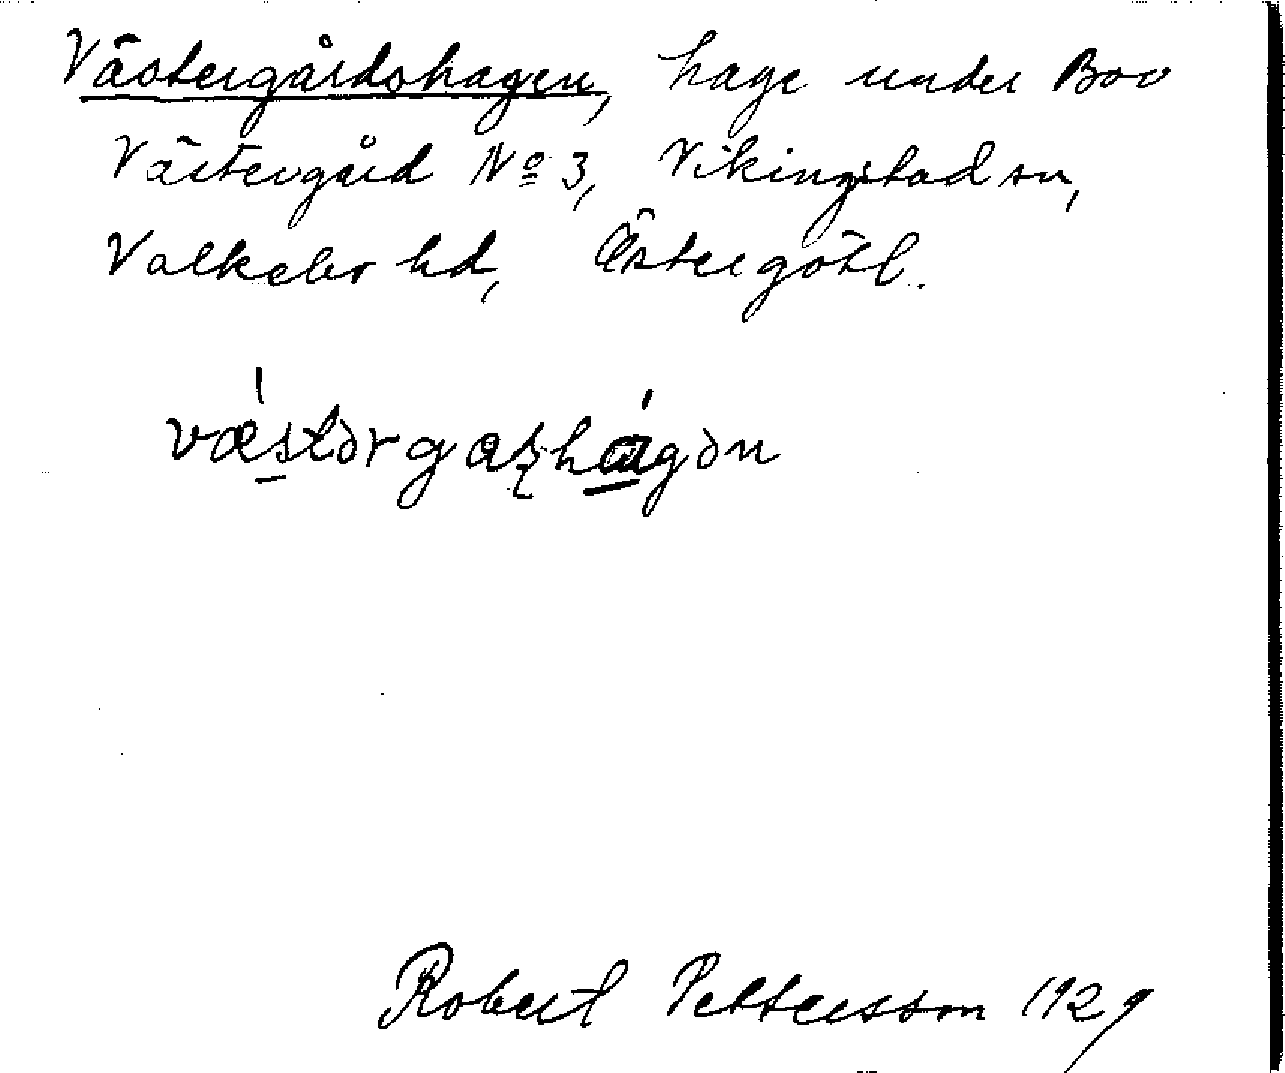 Västergårdshagen, hage under Boo
Västergård No 3, Vikingstad sn,
Valkebo hd, Östergötl.
vǽstərgaʂhágən
Robert Pettersson 1929